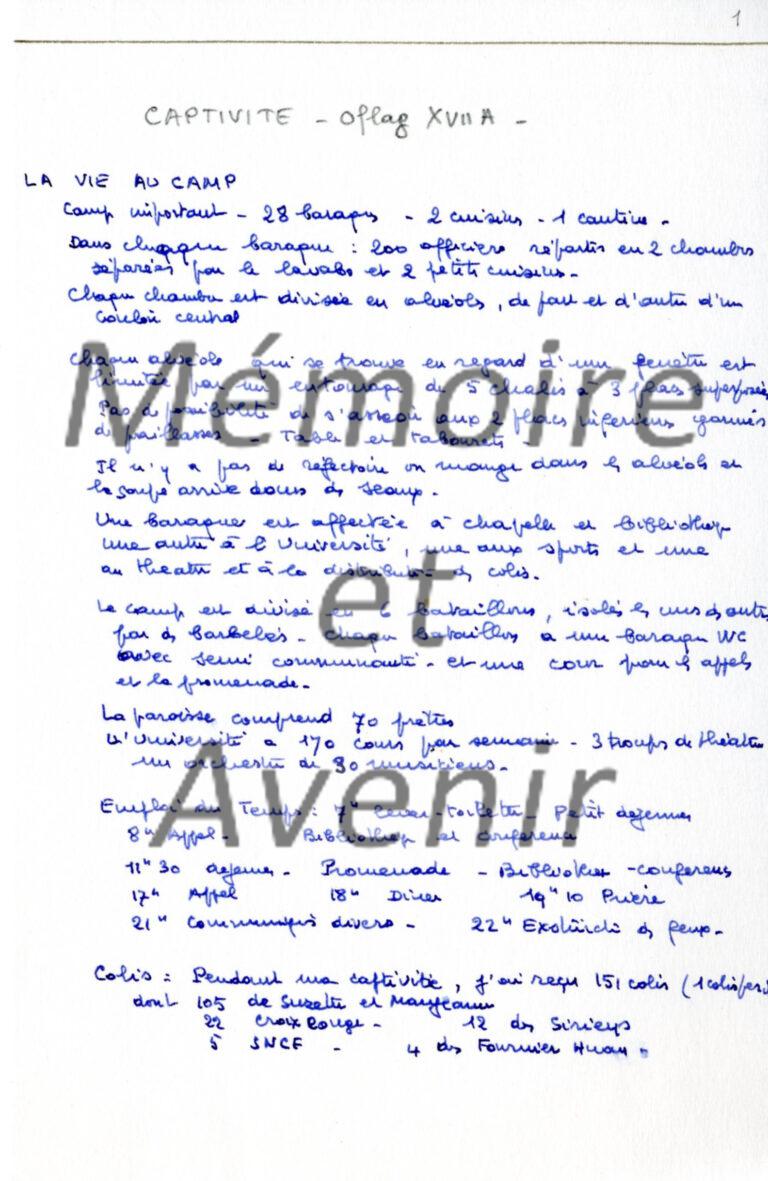 1
CAPTIVITE - Oflag XVII A -
LA VIE AU CAMP
Camp important - 28 baraques - 2 cuisines - 1 cantine -
Dans chaque baraque : 200 officiers répartis en 2 chambres
séparées par le lavabo et 2 petites cuisines -
Chaque chambre est divisée en alvéoles, de part et d'autre d'un
couloir central
Chaque alvéole qui se trouve en regard d'une fenêtre est
limitée par un entourage de 5 chalis à 3 places superposées
Pas de possibilité de s'asseoir aux 2 places inférieures garnies
de paillasses - Table et tabourets -
Il n'y a pas de réfectoire on mange dans les alvéoles et
la soupe arrive dans des seaux.
Une baraque est affectée à chapelle et Bibliothèque
une autre à l'Université, une aux sports et une
au théatre et à la distribution des colis.
Le camp est divisé en 6 bataillons, isolés les uns des autres
par des barbelés - chaque bataillon a une baraque WC
avec semi communauté - et une cour pour les appels
et la promenade.
La paroisse comprend 70 prêtres
L'Université a 170 cours par semaine - 3 troupes de théatre
un orchestre de 30 musiciens -
Emploi du Temps : 7h Lever - toilette - Petit dejeuner
8h Appel - Bibliothèque et conférences
11h 30 dejeuner - Promenade - Bibliothèque - conférences
17h Appel 18h Diner 19h 10 Prière
21h Communiqués divers - 22h Extinction des feux -
Colis : Pendant ma captivité, j'ai reçu 151 colis (1 colis par
dont 105 de Suzette et Maryjeanne
22 Croix Rouge - 12 des Sirieys
5 SNCF - 4 des Fournier Huau -
Mémoire
et
Avenir